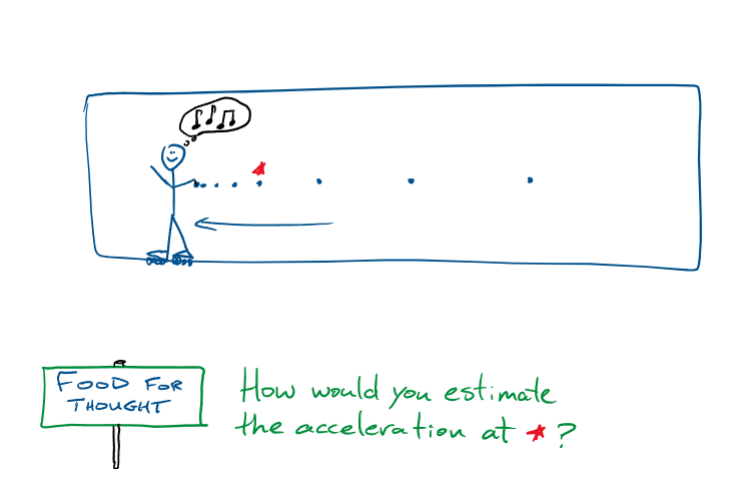 FOOD FOR
THOUGHT
How would you estimate
the acceleration at ★?